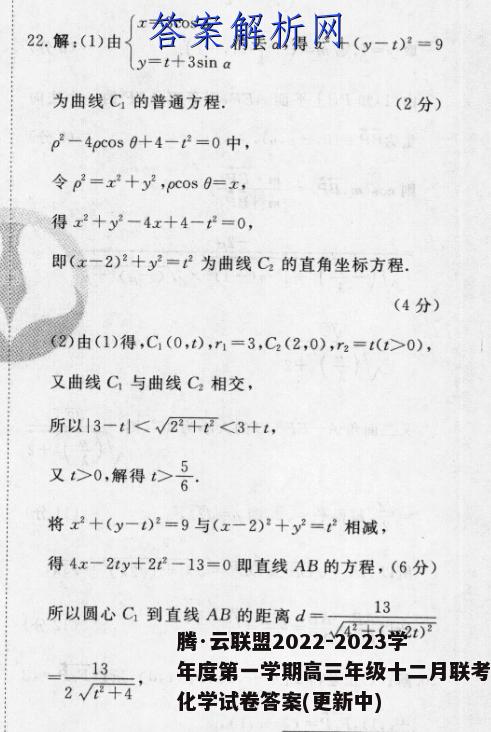 答案解析网
22.解:(1)由{x=3cos α
y=t+3sin α
消去α,得x²+(y−t)²=9
为曲线C₁的普通方程. (2分)
ρ²−4ρcos θ+4−t²=0中,
令ρ²=x²+y²,ρcos θ=x,
得x²+y²−4x+4−t²=0,
即(x−2)²+y²=t²为曲线C₂的直角坐标方程.
(4分)
(2)由(1)得,C₁(0,t),r₁=3,C₂(2,0),r₂=t(t>0),
又曲线C₁与曲线C₂相交,
所以|3−t|<√(2²+t²)<3+t,
又t>0,解得t>5/6.
将x²+(y−t)²=9与(x−2)²+y²=t²相减,
得4x−2ty+2t²−13=0即直线AB的方程,(6分)
所以圆心C₁到直线AB的距离d=13/√(4²+(−2t)²)
=13/(2√(t²+4)),
腾·云联盟2022-2023学
年度第一学期高三年级十二月联考
化学试卷答案(更新中)